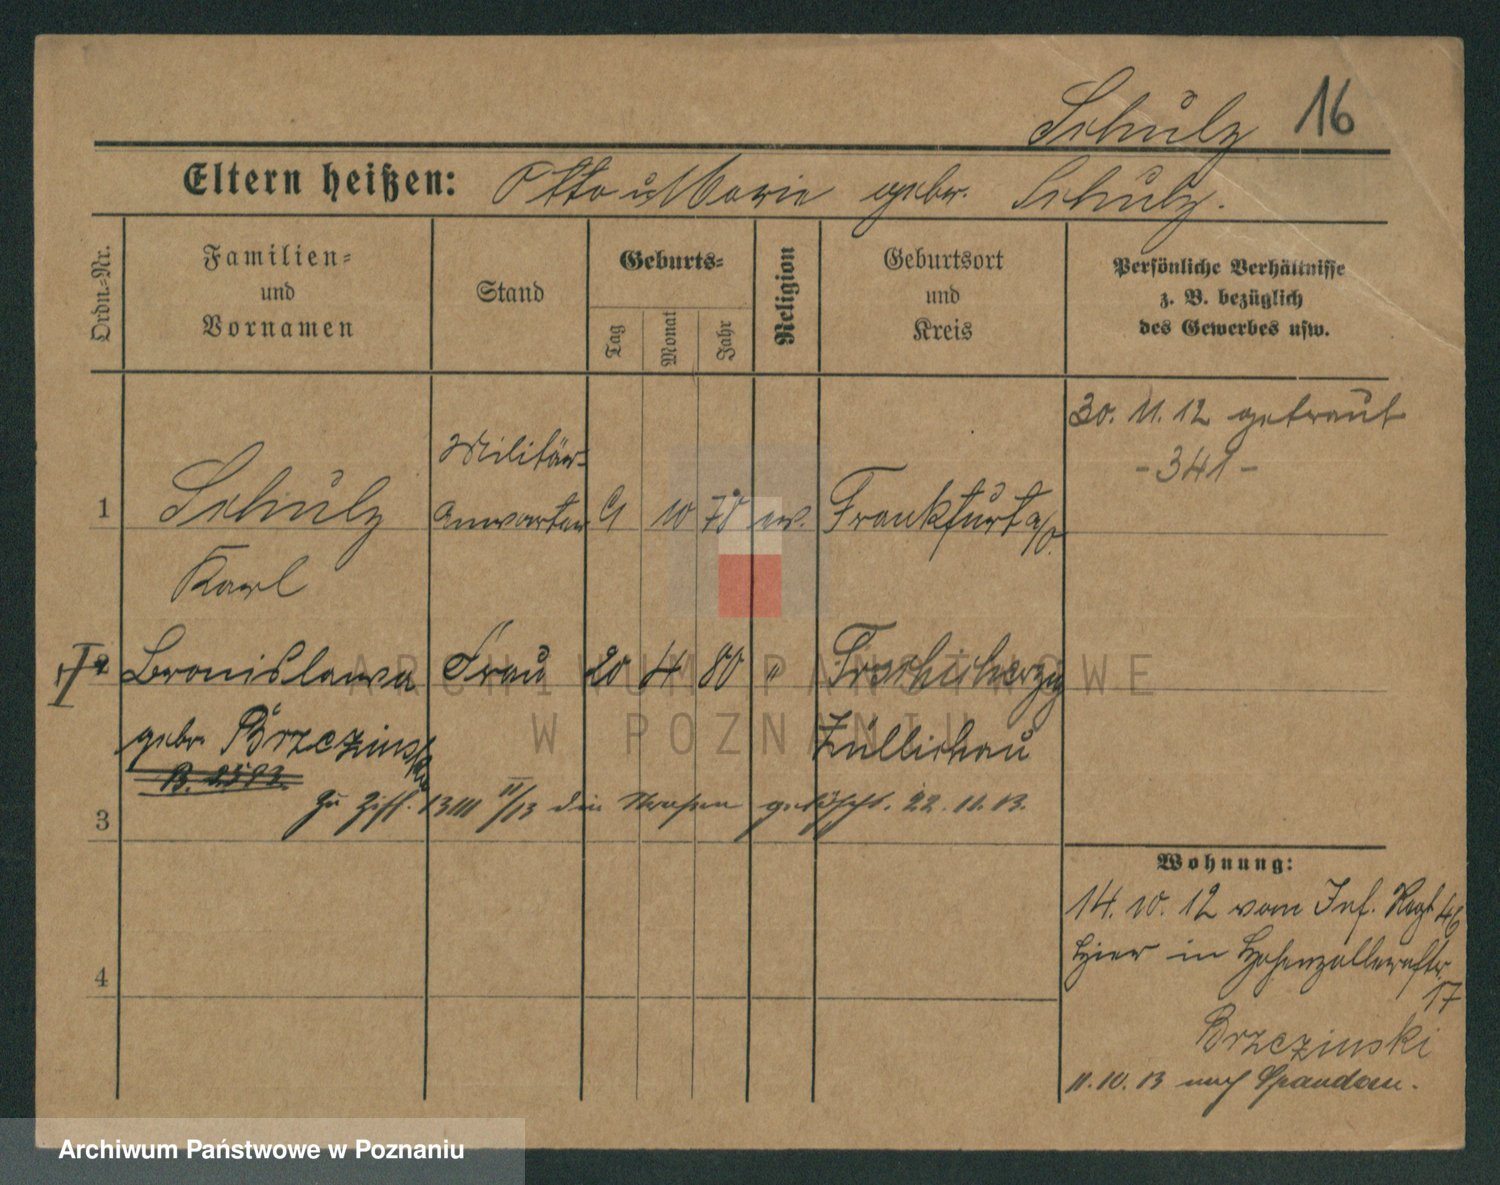 Schulz 16
Eltern heißen: Otto u Marie gebr. Schulz.
Ordn.-Nr.
Familien-
und
Vornamen
Stand
Geburts-
Tag
Monat
Jahr
Religion
Geburtsort
und
Kreis
Persönliche Verhältnisse
z. B. bezüglich
des Gewerbes usw.
30. 11. 12 getraut
- 341 -
1 Schulz Militär-
anwärter 9 10 78 ev. Frankfurt a/O.
Karl
2 Bronislawa Frau 20 4 80 "
gebr. Brzezinska Züllichau
B. 2583
zu Ziff. die Strafen gelöscht. 22. 11. 13.
3
Wohnung:
14. 10. 12 vom Inf. Regt 46
hier in Hohenzollernstr.
17
Brzezinski
4
11. 10. 13 nach Spandau.
ARCHIWUM PAŃSTWOWE
W POZNANIU
Archiwum Państwowe w Poznaniu